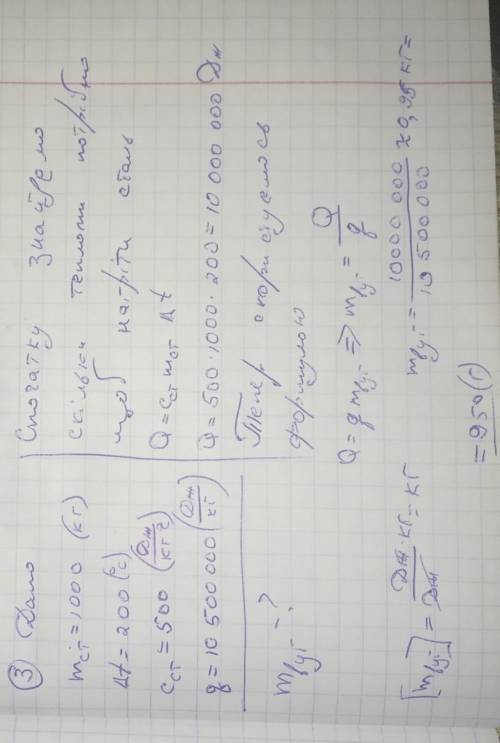 ③ Дано
m ст = 1000 (кг)
Δt = 200 (°C)
c ст = 500 (Дж/кг°C)
q = 10 500 000 (Дж/кг)
m буг - ?
Спочатку знайдемо
скільки теплоти потрібно
щоб нагріти сталь
Q = c ст m ст Δt
Q = 500 · 1000 · 200 = 10 000 000 Дж
Тепер скористуємось
формулою
Q = q m буг => m буг = Q/q
[m буг] = Дж · кг/Дж = кг
m буг = 10000 000/10 500 000 ≈ 0,95 кг =
= 950 (г)